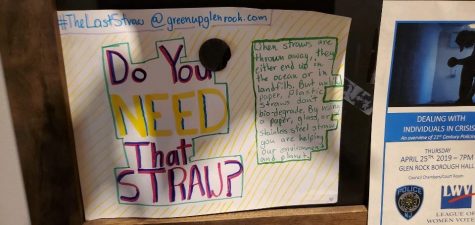 #TheLastStraw @ greenupglenrock.com
Do You
NEED
That
STRAW?
When straws are
thrown away, they
either end up in
the ocean or in
landfills. But unlike
paper, plastic
straws don't
bio-degrade. By using
a paper, glass, or
stainless steel straw
you are helping
our environment
and planet.
DEALING WITH
INDIVIDUALS IN CRISIS
An overview of 21st Century Policing
THURSDAY
APRIL 25TH 2019 – 7PM
GLEN ROCK BOROUGH HALL
Council Chambers/Court Room
POLICE
LWV
LEAGUE OF
WOMEN VOTE